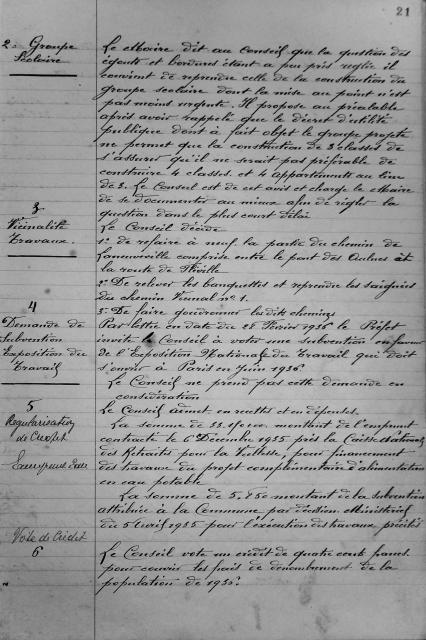 21
2. Groupe
Scolaire
Le Maire dit au Conseil que la question des
égouts et bordures étant a peu près reglée il
convient de reprendre celle de la construction du
groupe scolaire dont la mise au point n'est
pas moins urgente. Il propose au préalable
après avoir rappelé que le décret d'utilité
publique dont à fait objet le groupe projeté
ne permet que la construction de 3 classes de
s'assurer qu'il ne serait pas préférable de
construire 4 classes. et 4 appartements au lieu
de 3. Le Conseil est de cet avis et charge le Maire
de se documenter au mieux afin de régler la
question dans le plus court délai
3
Vicinalité
Travaux.
Le Conseil décide
1º de refaire à neuf la partie du chemin de
Laneuveville comprise entre le pont des Aulnes et
la route de
2º De relever les banquettes et reprendre les saignées
du chemin Vicinal nº 1.
3º De faire goudronner les dits chemins
4
Demande de
Subvention
Exposition du
Travail
Par lettre en date du 28 Février 1936 le Préfet
invite le Conseil à voter une subvention en faveur
de l'Exposition Nationale du Travail qui doit
s'ouvrir à Paris en Juin 1936
Le Conseil ne prend pas cette demande en
considération
5
Régularisation
de Crédit
Le Conseil admet en recettes et en dépenses.
La somme de montant de l'emprunt
contracté le 6 Décembre 1935 près la Caisse Nationale
des Retraites pour la Vieillesse, pour financement
des travaux du projet complémentaire d'alimentation
en eau potable
La somme de montant de la subvention
attribuée à la Commune par décision Ministérielle
du 5 Avril 1935 pour l'exécution des travaux précités
Vote de Crédit
6
Le Conseil vote un crédit de quatre cents francs
pour couvrir les frais de dénombrement de la
population de 1936.